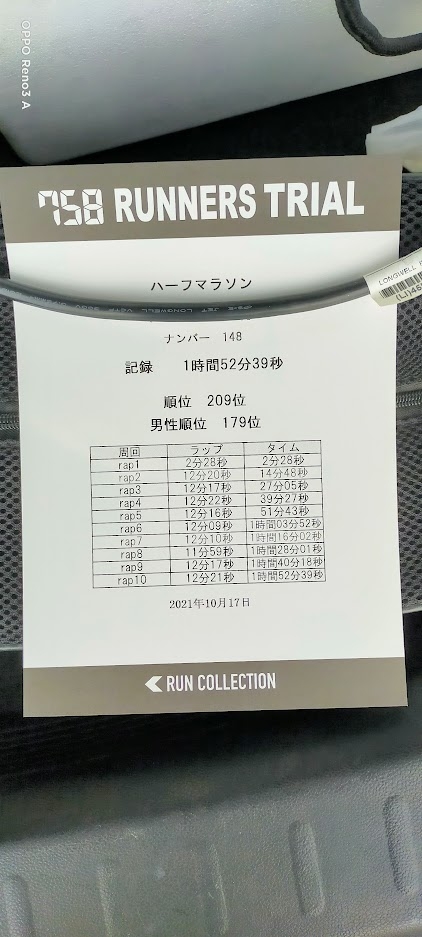 OPPO Reno3 A
758 RUNNERS TRIAL
ハーフマラソン
LONGWELL
ナンバー 148
記録 1時間52分39秒
順位 209位
男性順位 179位
周回 ラップ タイム
rap1 2分28秒 2分28秒
rap2 12分20秒 14分48秒
rap3 12分17秒 27分05秒
rap4 12分22秒 39分27秒
rap5 12分16秒 51分43秒
rap6 12分09秒 1時間03分52秒
rap7 12分10秒 1時間16分02秒
rap8 11分59秒 1時間28分01秒
rap9 12分17秒 1時間40分18秒
rap10 12分21秒 1時間52分39秒
2021年10月17日
RUN COLLECTION